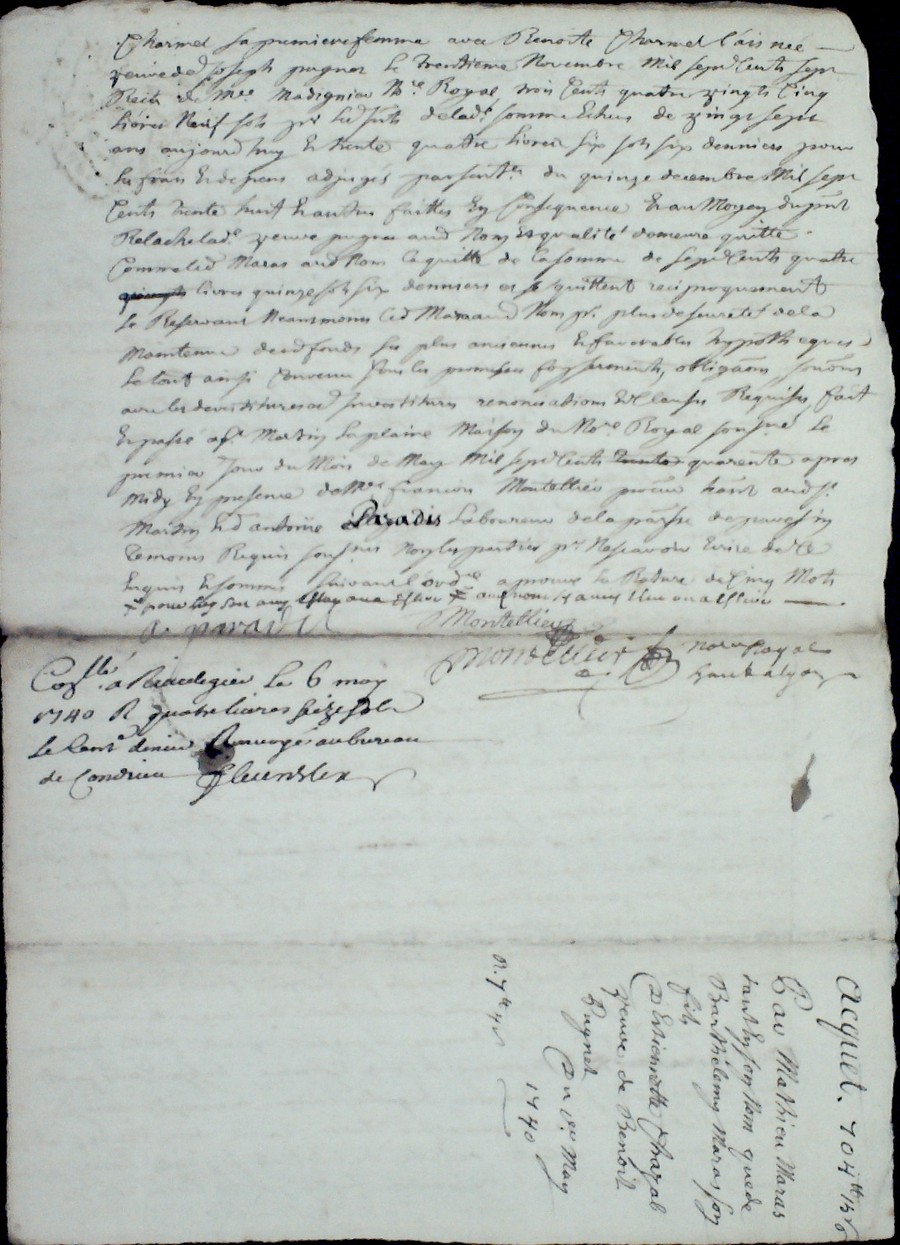 Charmel sa premiere femme avec Benoite Charmel l'aisnée
veuve de Joseph pugnet le trentieme Novembre mil sept Cents sept
Me. Madignier Nre. Royal trois Cents quatre vingts Cinq
livres Neuf sols pr. de lade. somme Echus de vingt sept
ans aujourd huy Et trente quatre livres six sols six denniers pour
les frais Et depens adjugés par sentce. du quinze decembre Mil sept
Cents trente huit Et autres faittes En Consequence Et au Moyen du pnt
Relache lade. veuve pugnet aud. Nom Et qualité demeure quitte
Comme led. Maras aud. Nom Ce quitte de la somme de sept Cents quatre
livres quinze sols six denniers et se quittent reciproquement
Se Reservant Neansmoins led. Maras aud. Nom pr. plus de sureté de la
Maintenue desd. fonds ses plus anciennes Et favorables hypotheques
Le tout ainsi Convenu sous les promesses serments, obligaons
avec les devestitures et Investitures renonciations Et Clauses Requises, fait
Et passé a st. Martin la plaine Maison du Nore. Royal sousné. Le
premier Jour du Mois de May Mil sept Cents quarente apres
Midy En presence de Me. francois Montellier aud. st.
Martin Et d'antoine Paradis Laboureur de la parsse de pavezin
Temoins Requis sousnes Non les parties pr. ne scavoir Ecrire de ce
Enquis Et sommés suivant l'ordce. aprouvé la Rature de Cinq Mots
A. paradis Montellier
Montellier notre Royal
Conllé. a Rivedegier Le 6 may
1740 R quatre livres seize sols
Le Cent. denier Renvoyé au bureau
de Condrieu
Acquet. 704tt 15s 6
Par Mathieu Maras
tant En son Nom que de
Barthelemy Maras son
fils
D'Estiennette Chazal
veuve de Benoit
Pugnet
Du 1er May
1740